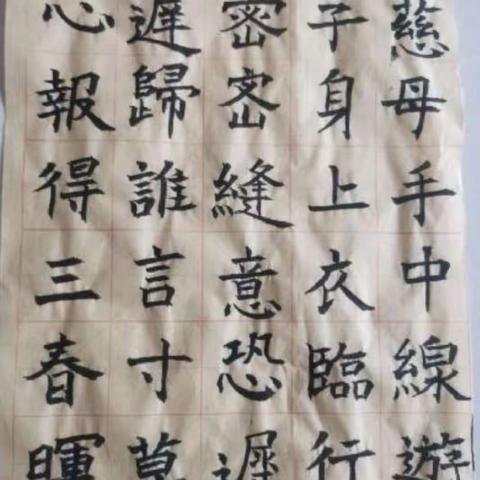 慈母手中線遊
子身上衣臨行
密密縫意恐遲
遲歸誰言寸草
心報得三春暉